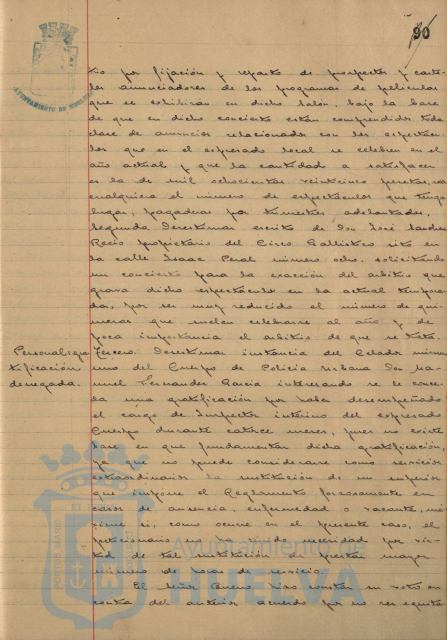 90
AYUNTAMIENTO DE HUELVA
tio por fijación y reparto de prospectos y carte-
les anunciadores de los programas de películas
que se exhibirán en dicho salón, bajo la base
de que en dicho concierto están comprendidos toda
clase de anuncios relacionados con los espectácu-
los que en el expresado local se celebren en el
año actual y que la cantidad a satisfacer
es la de mil ochocientas veinticinco pesetas, sea
cualquiera el número de espectáculos que tenga
lugar, pagaderas por trimestres adelantados.
Segundo. Desestimar escrito de Don José Sánchez
Recio propietario del Circo Gallístico sito en
la calle Isaac Peral número ocho, solicitando
un concierto para la exacción del arbitrio que
grava dicho espectáculo en la actual tempora-
da, por ser muy reducido el número de qui-
meras que suelen celebrarse al año y de
poca importancia el arbitrio de que se trata.
Personal: gra-
tificación
denegada.
Tercero. Desestimar instancia del Celador número
uno del Cuerpo de Policía Urbana Don Ma-
nuel Fernández García interesando se le conce-
da una gratificación por haber desempeñado
el cargo de Inspector interino del expresado
Cuerpo durante catorce meses, pues no existe
base en que fundamentar dicha gratificación,
ya que no puede considerarse como servicios
extraordinarios la sustitución de un superior
que impone el Reglamento forzosamente en
casos de ausencia, enfermedad o vacante, má-
xime si, como ocurre en el presente caso, el
peticionario no ha tenido necesidad por vir-
tud de tal sustitución de prestar mayor
número de horas de servicio.
El Señor hizo constar su voto en
contra del anterior acuerdo por no ser equita
Ayuntamiento de
HUELVA